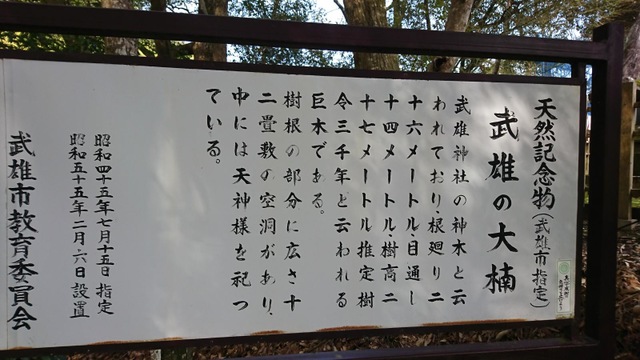 天然記念物(武雄市指定)
武雄の大楠
武雄神社の神木と云
われており、根廻り二
十六メートル・目通し
十四メートル・樹高二
十七メートル推定樹
令三千年と云われる
巨木である。
樹根の部分に広さ十
二畳敷の空洞があり、
中には天神様を祀っ
ている。
昭和四十五年七月十五日指定
昭和五十五年二月六日設置
武雄市教育委員会